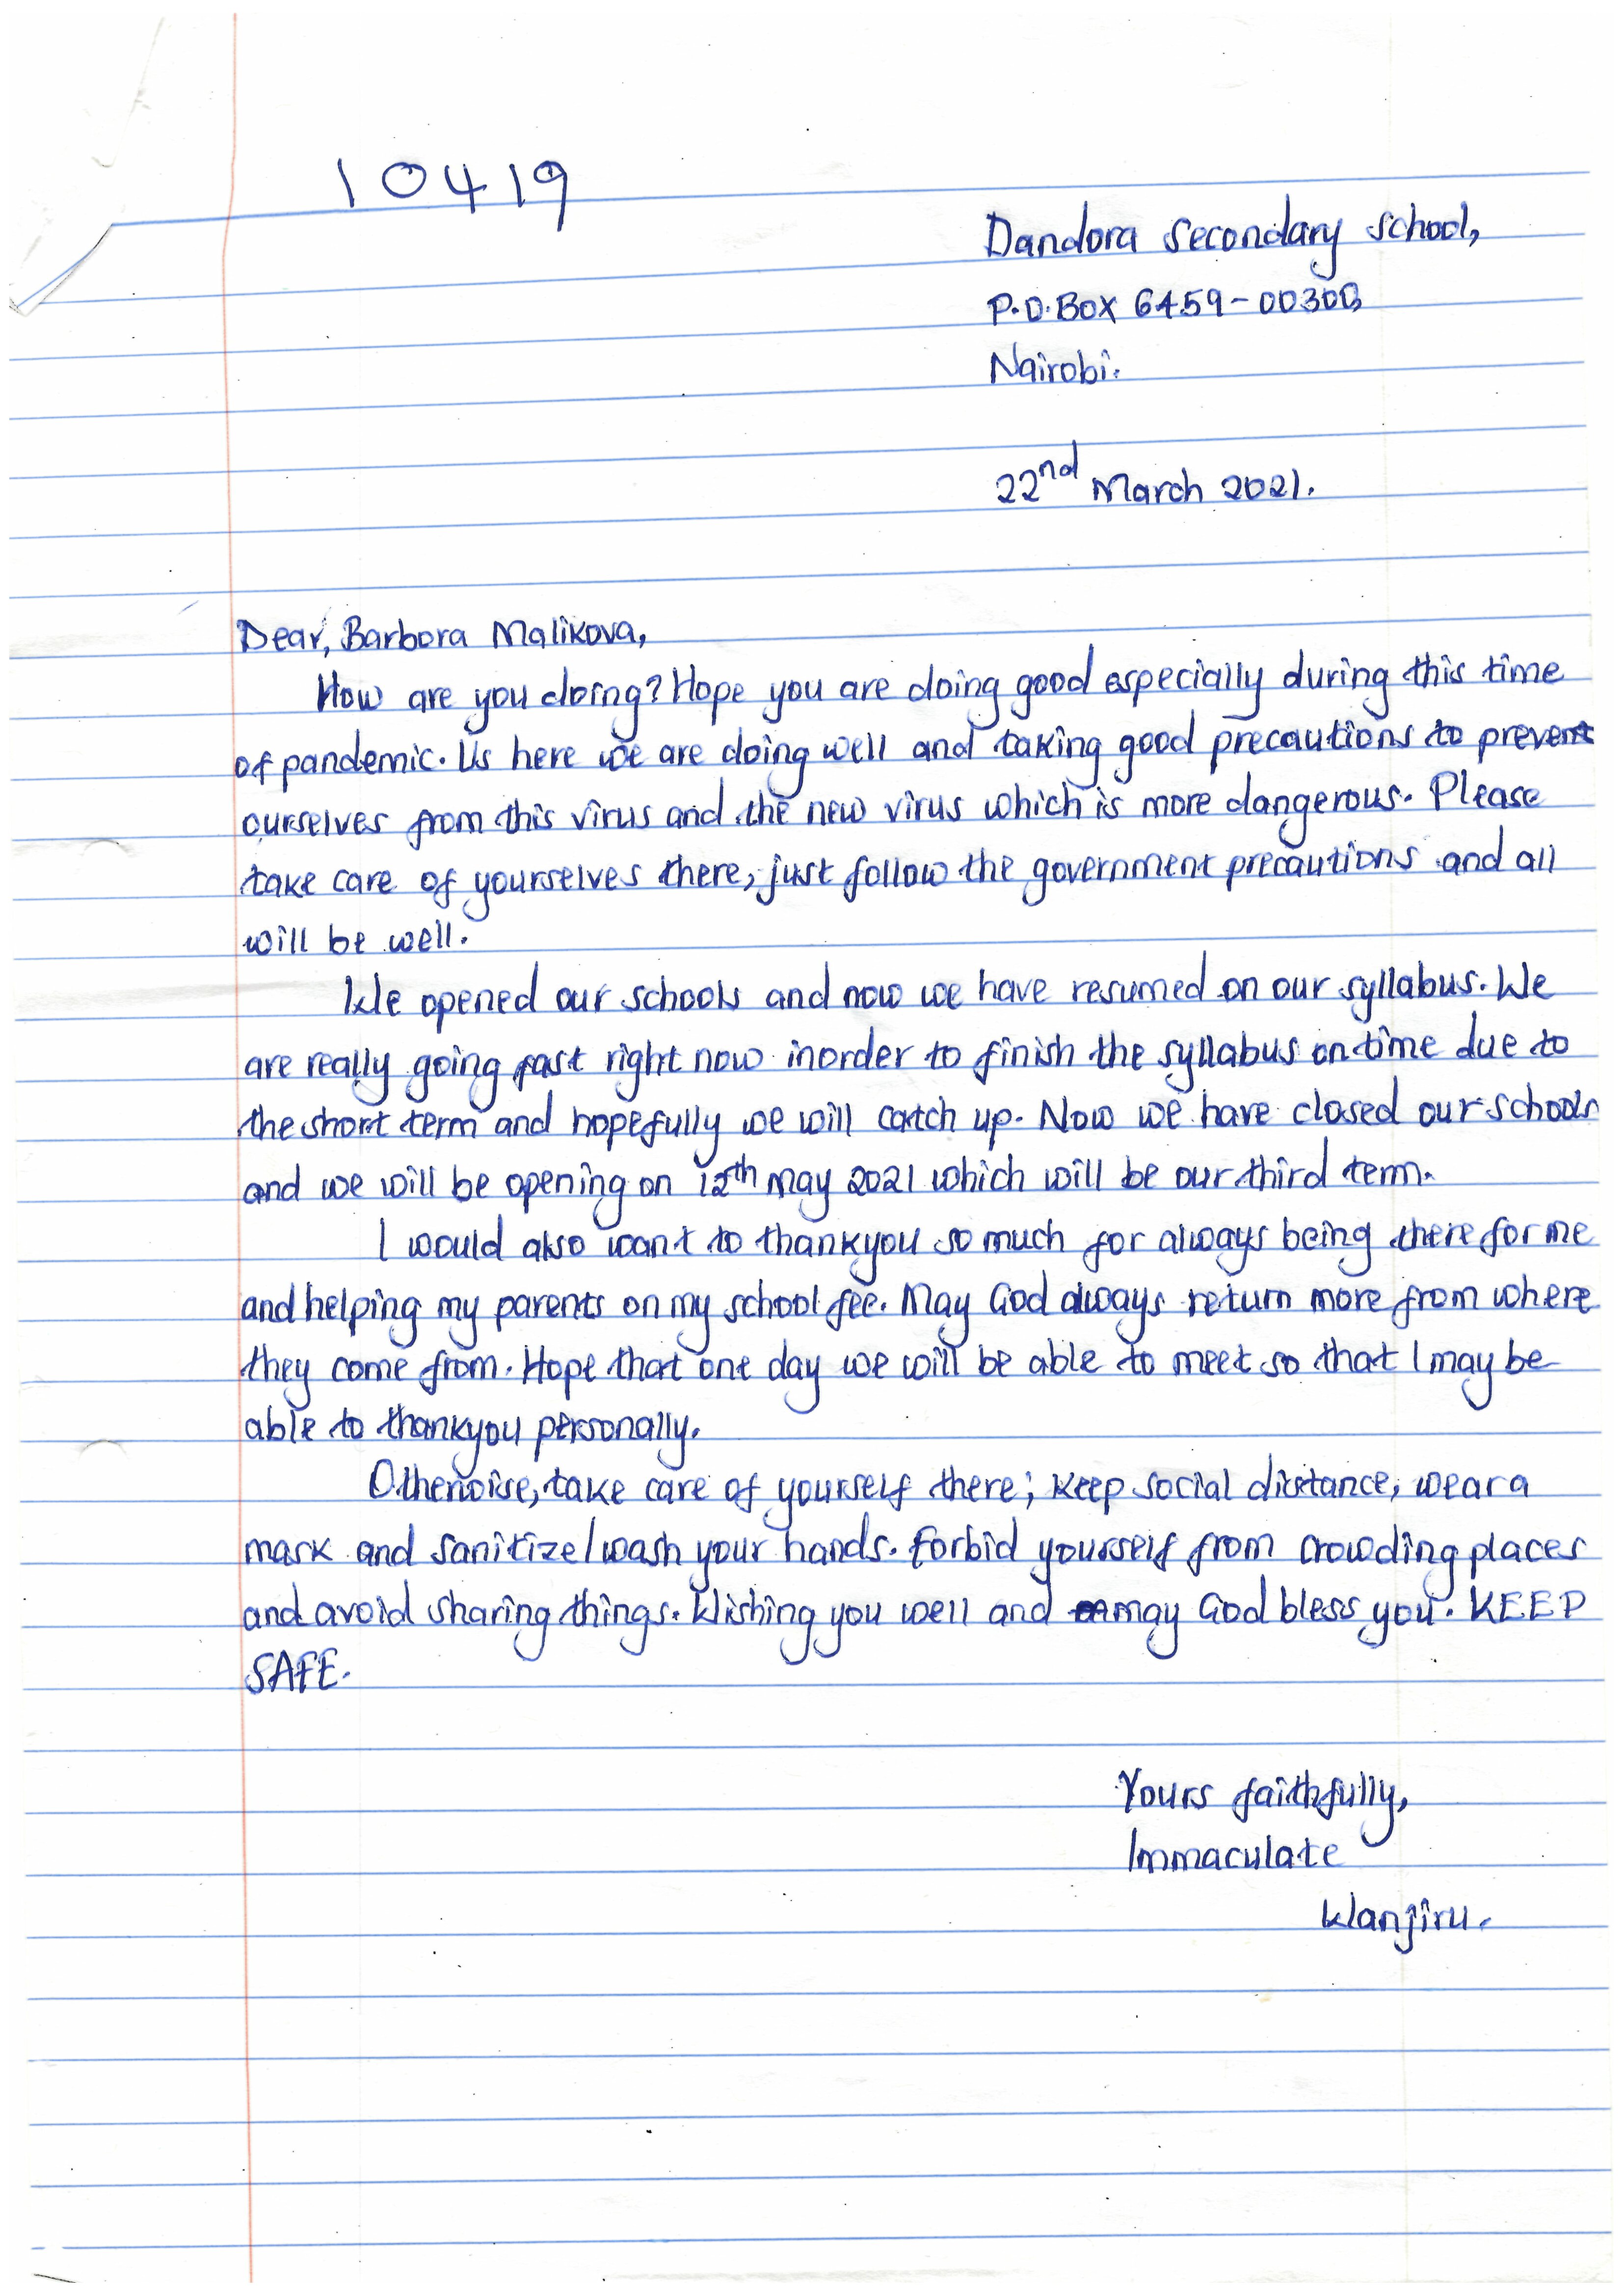 10419
Dandora Secondary School,
P.O.Box 6459-00300,
Nairobi.
22nd March 2021.
Dear, Barbora Malikova,
How are you doing? Hope you are doing good especially during this time
of pandemic. Us here we are doing well and taking good precautions to prevent
ourselves from this virus and the new virus which is more dangerous. Please
take care of yourselves there, just follow the government precautions and all
will be well.
We opened our schools and now we have resumed on our syllabus. We
are really going fast right now inorder to finish the syllabus on time due to
the short term and hopefully we will catch up. Now we have closed our schools
and we will be opening on 12th May 2021 which will be our third term.
I would also want to thankyou so much for always being there for me
and helping my parents on my school fee. May God always return more from where
they come from. Hope that one day we will be able to meet so that I may be
able to thankyou personally.
Otherwise, take care of yourself there; keep social distance, wear a
mask and sanitize/wash your hands. Forbid yourself from crowding places
and avoid sharing things. Wishing you well and may God bless you. KEEP
SAFE.
Yours faithfully,
Immaculate
Wanjiru.